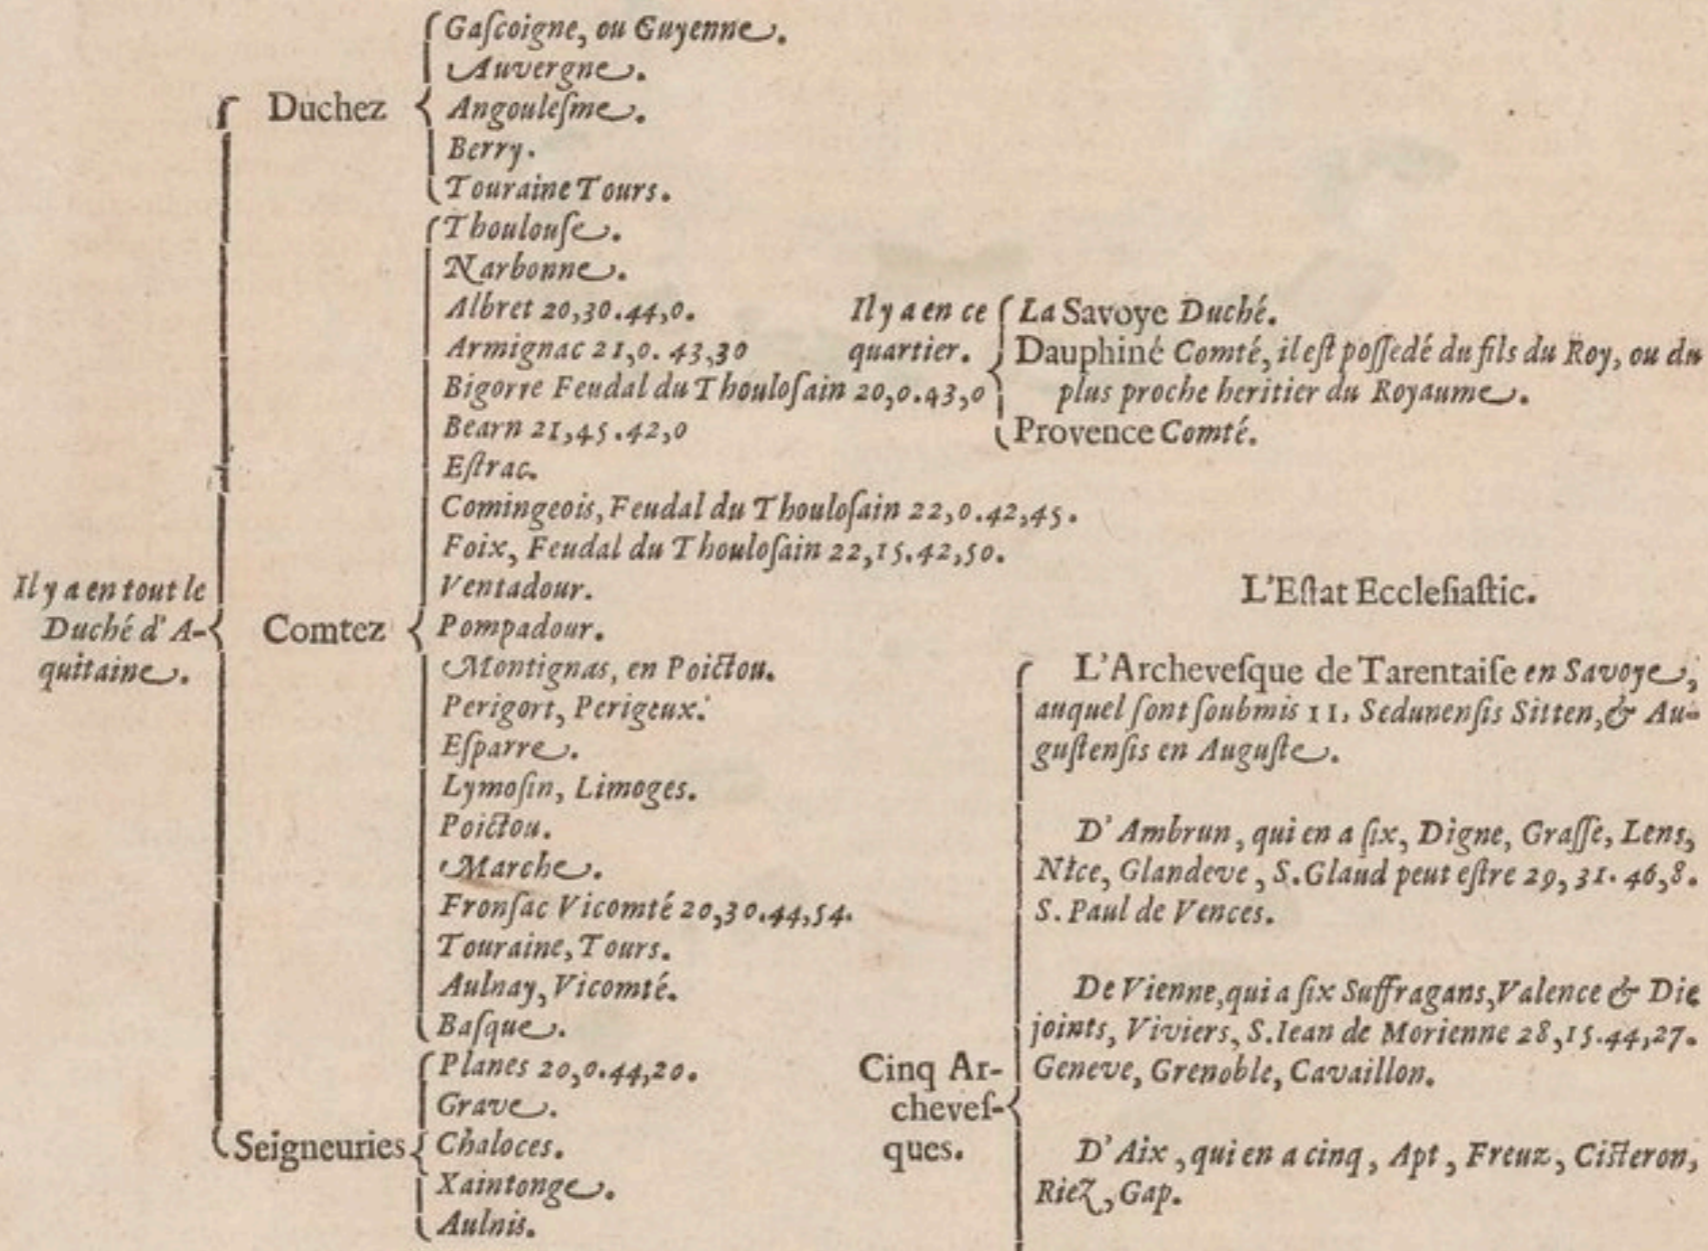 Gaſcoigne, ou Guyenne.
Auvergne.
Duchez
Angouleſme.
Berry.
Touraine Tours.
Thoulouſe.
Narbonne.
Albret 20,30.44,0.
Armignac 21,0. 43,30
Bigorre Feudal du Thouloſain 20,0.43,0
Bearn 21,45.42,0
Eſtrac.
Comingeois, Feudal du Thouloſain 22,0.42,45.
Foix, Feudal du Thouloſain 22,15.42,50.
Ventadour.
Il y a en tout le
Duché d'A-
quitaine.
Comtez
Pompadour.
Montignas, en Poictou.
Perigort, Perigeux.
Eſparre.
Lymoſin, Limoges.
Poictou.
Marche.
Fronſac Vicomté 20,30.44,54.
Touraine, Tours.
Aulnay, Vicomté.
Baſque.
Planes 20,0.44,20.
Grave.
Seigneuries
Chaloces.
Xaintonge.
Aulnis.
Il y a en ce
quartier.
La Savoye Duché.
Dauphiné Comté, il eſt poſſedé du fils du Roy, ou du
plus proche heritier du Royaume.
Provence Comté.
L'Eſtat Eccleſiaſtic.
L'Archeveſque de Tarentaiſe en Savoye,
auquel ſont ſoubmis 11, Sedunenſis Sitten, & Au-
guſtenſis en Auguſte.
D'Ambrun, qui en a ſix, Digne, Graſſe, Lens,
Nice, Glandeve, S. Gland peut eſtre 29, 31. 46,8.
S. Paul de Vences.
De Vienne, qui a ſix Suffragans, Valence & Die
joints, Viviers, S. Iean de Morienne 28,15.44,27.
Geneve, Grenoble, Cavaillon.
Cinq Ar-
cheveſ-
ques.
D'Aix, qui en a cinq, Apt, Freuz, Ciſteron,
Riez, Gap.